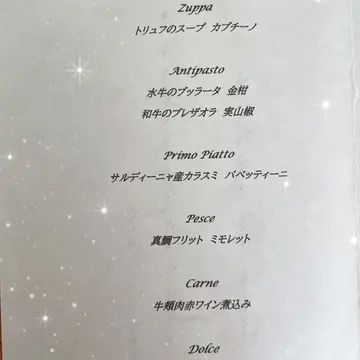 Zuppa
トリュフのスープ カプチーノ
Antipasto
水牛のブッラータ 金柑
和牛のブレザオラ 実山椒
Primo Piatto
サルディーニャ産カラスミ バベッティーニ
Pesce
真鯛フリット ミモレット
Carne
牛頬肉赤ワイン煮込み
Dolce